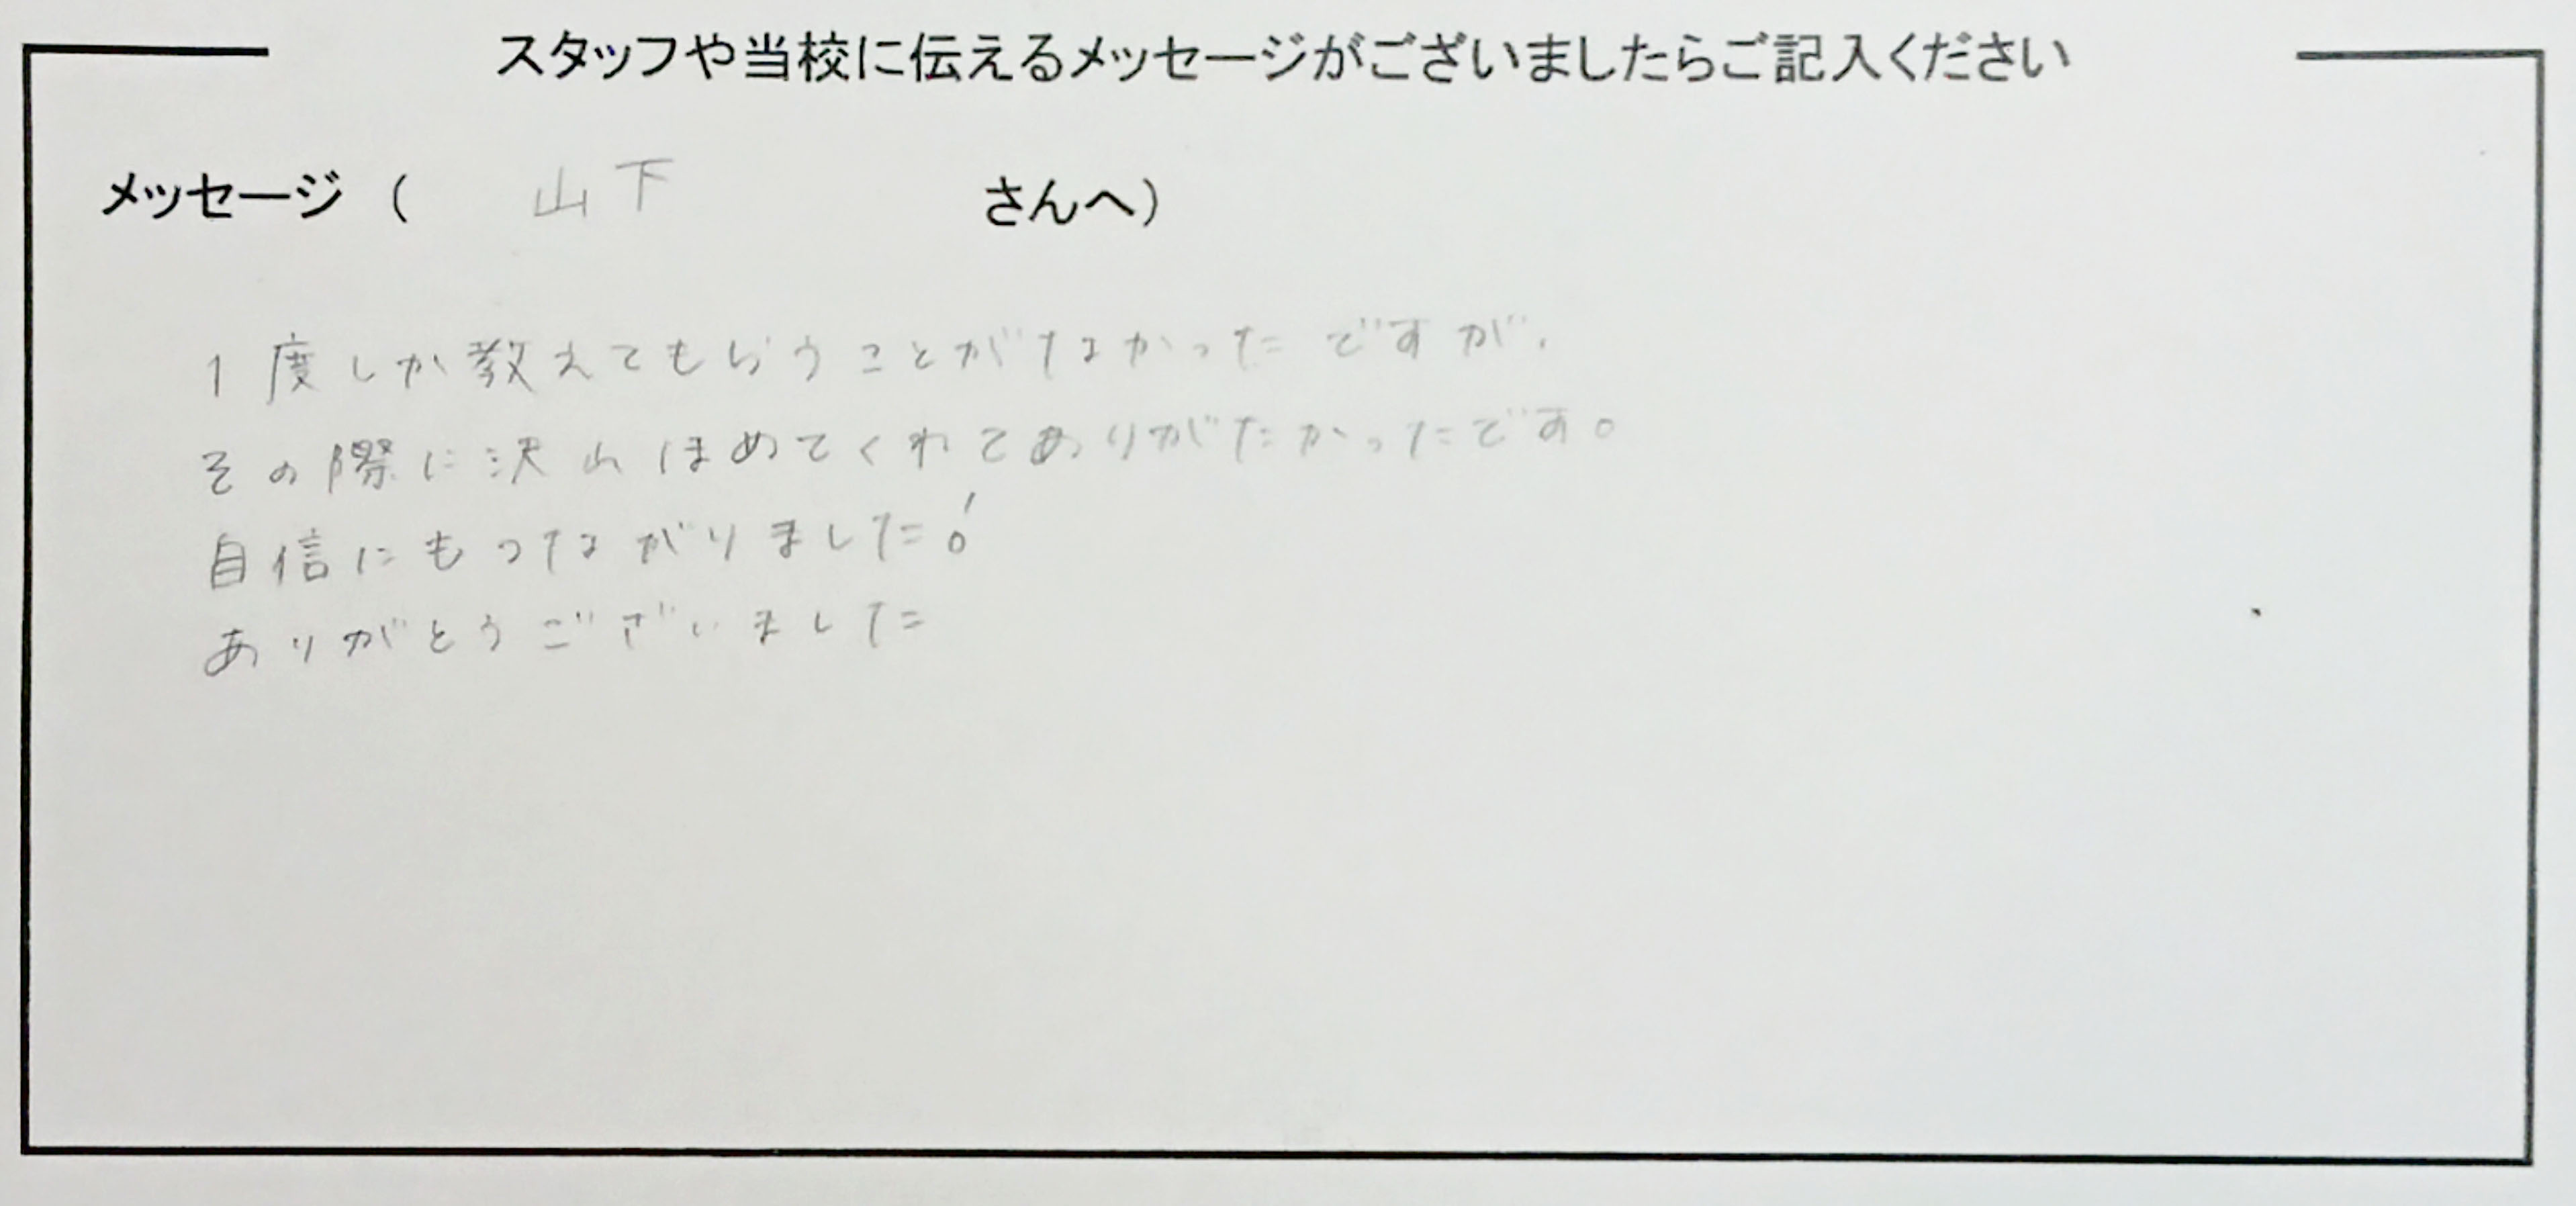 スタッフや当校に伝えるメッセージがございましたらご記入ください
メッセージ（ 山下 さんへ）
1度しか教えてもらうことがなかったですが、
その際に沢山ほめてくれてありがたかったです。
自信にもつながりました！
ありがとうございました